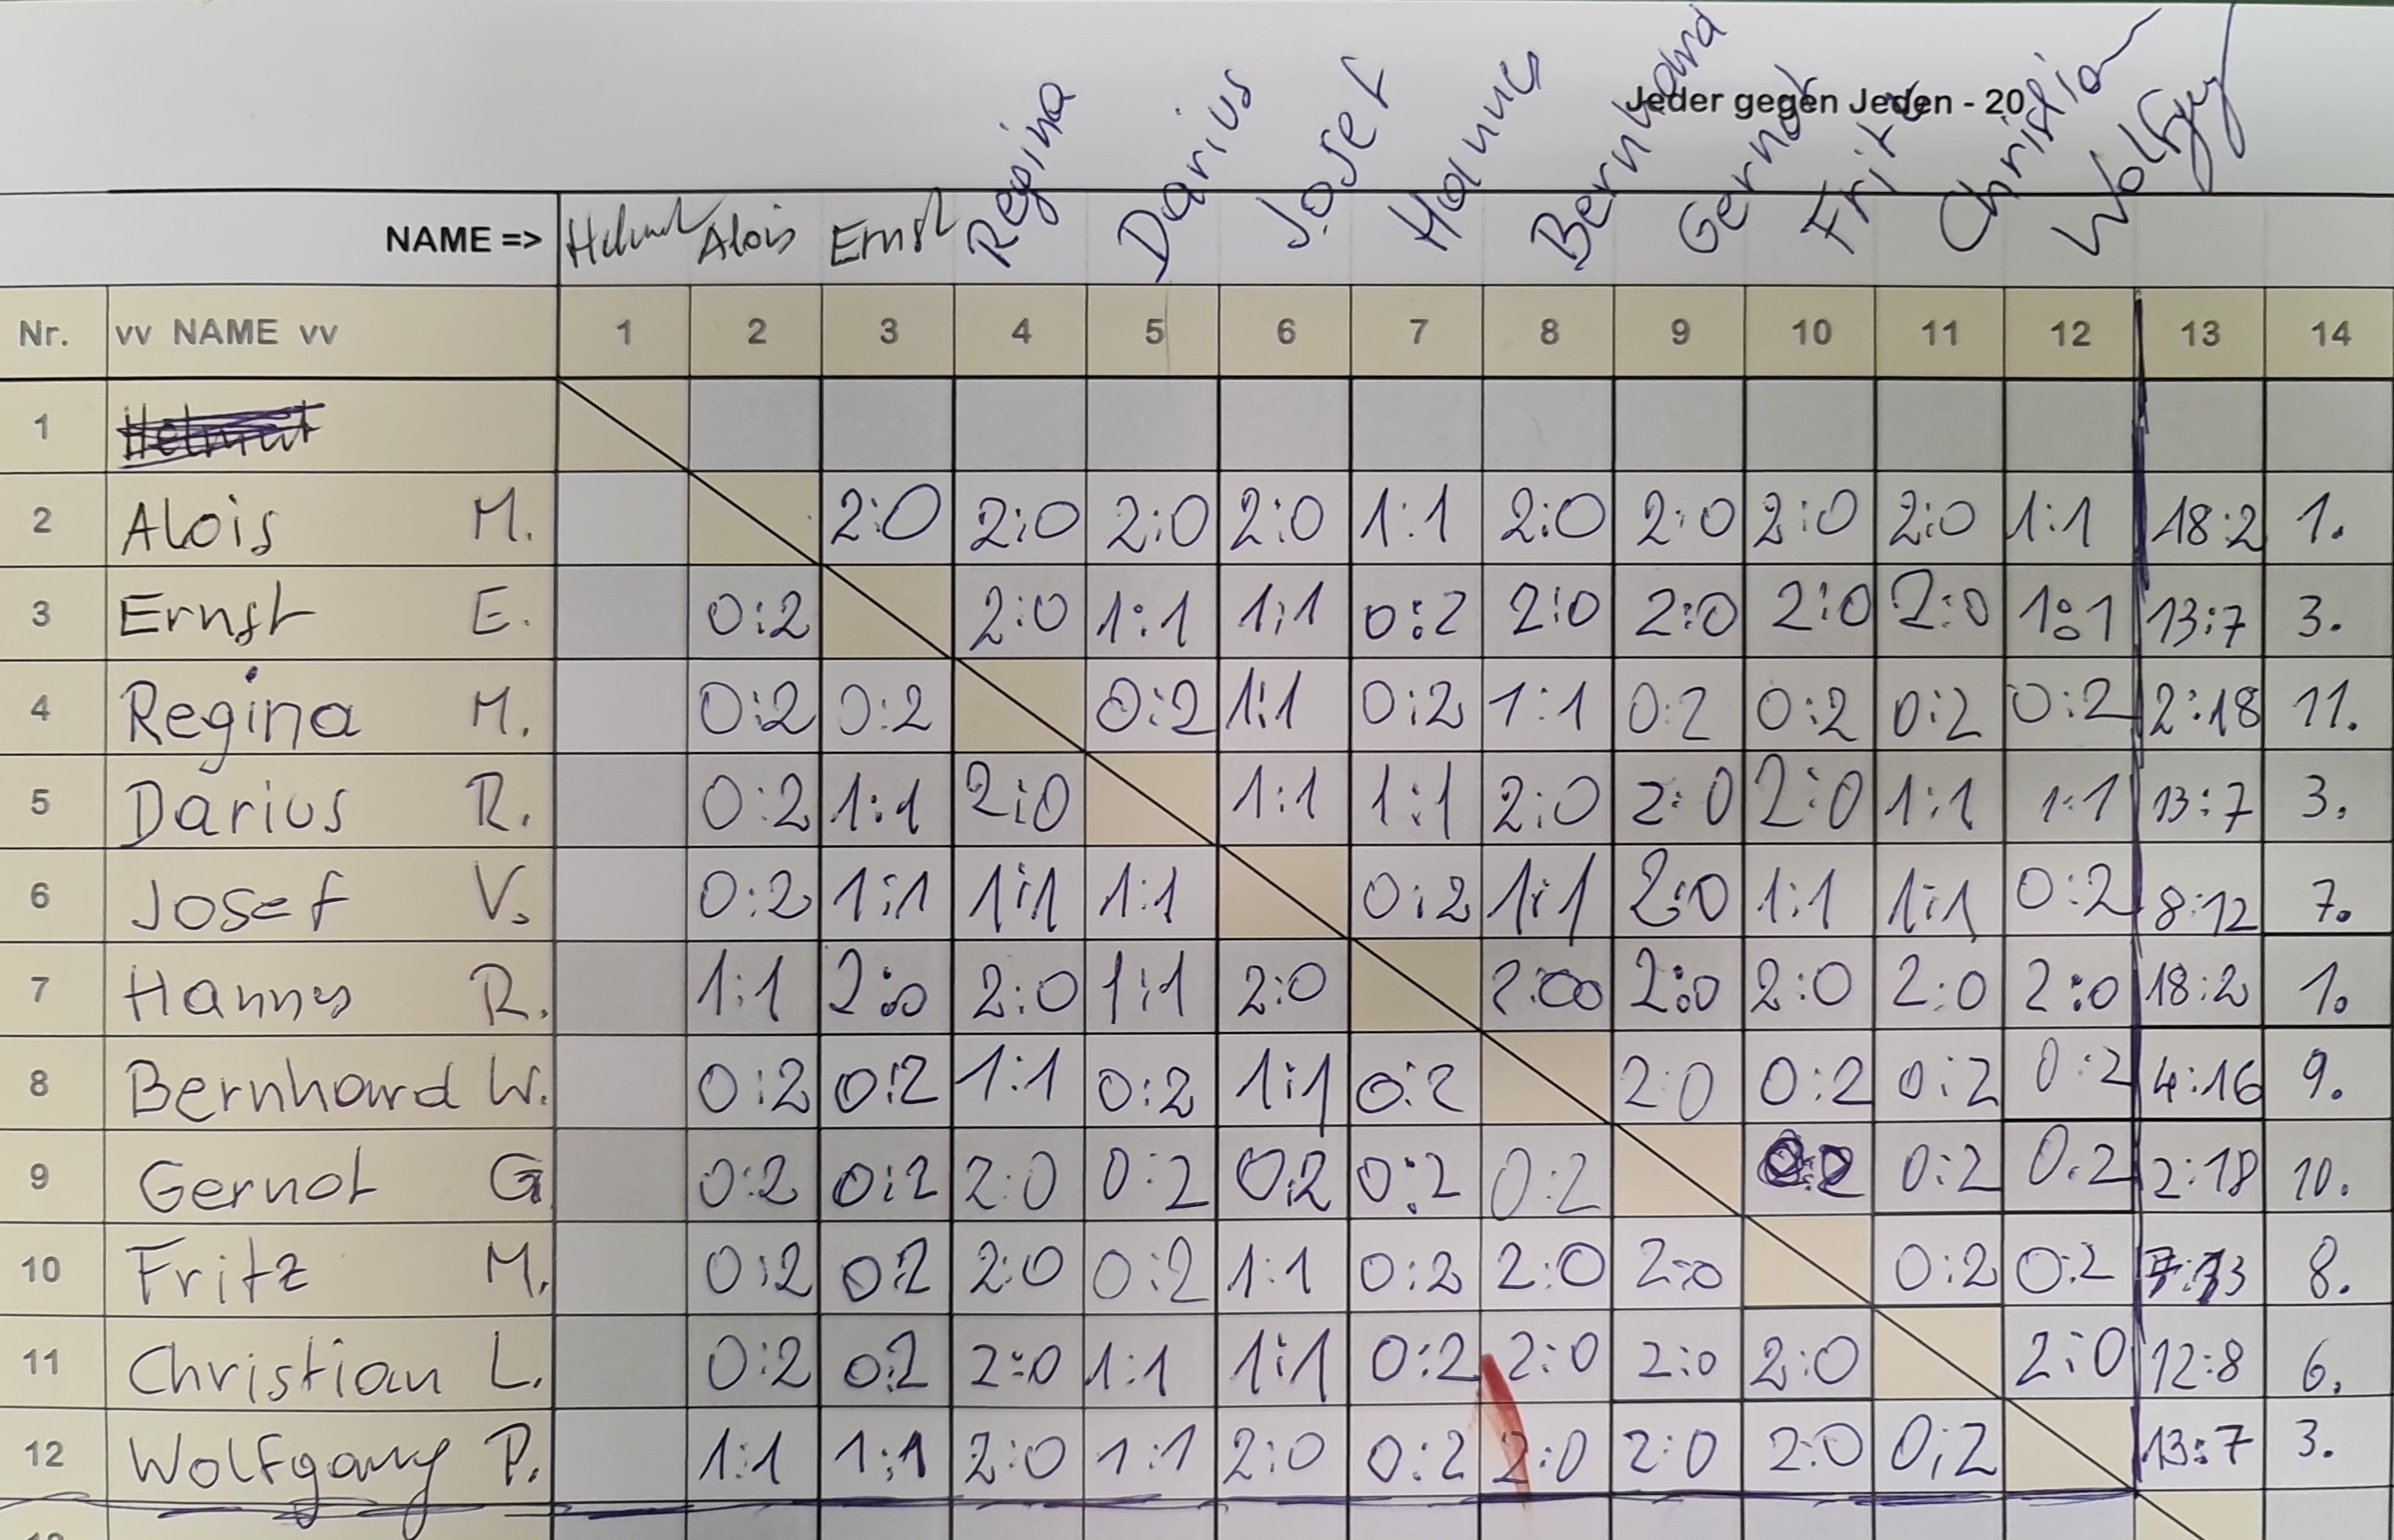 Jeder gegen Jeden - 20
NAME => Helmut Alois Ernst Regina Darius Josef Hannes Bernhard Gernot Fritz Christian Wolfgang
Nr. vv NAME vv 1 2 3 4 5 6 7 8 9 10 11 12 13 14
1 Helmut
2 Alois M. 2:0 2:0 2:0 2:0 1:1 2:0 2:0 2:0 2:0 1:1 18:2 1.
3 Ernst E. 0:2 2:0 1:1 1:1 0:2 2:0 2:0 2:0 2:0 1:1 13:7 3.
4 Regina M. 0:2 0:2 0:2 1:1 0:2 1:1 0:2 0:2 0:2 0:2 2:18 11.
5 Darius R. 0:2 1:1 2:0 1:1 1:1 2:0 2:0 2:0 1:1 1:1 13:7 3.
6 Josef V. 0:2 1:1 1:1 1:1 0:2 1:1 2:0 1:1 1:1 0:2 8:12 7.
7 Hannes R. 1:1 2:0 2:0 1:1 2:0 2:0 2:0 2:0 2:0 2:0 18:2 1.
8 Bernhard W. 0:2 0:2 1:1 0:2 1:1 0:2 2:0 0:2 0:2 0:2 4:16 9.
9 Gernot G 0:2 0:2 2:0 0:2 0:2 0:2 0:2 0:2 0:2 0:2 2:18 10.
10 Fritz M. 0:2 0:2 2:0 0:2 1:1 0:2 2:0 2:0 0:2 0:2 7:13 8.
11 Christian L. 0:2 0:2 2:0 1:1 1:1 0:2 2:0 2:0 2:0 2:0 12:8 6.
12 Wolfgang P. 1:1 1:1 2:0 1:1 2:0 0:2 2:0 2:0 2:0 0:2 13:7 3.